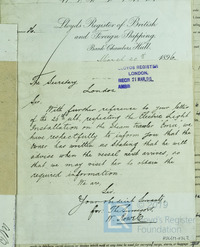 Lloyd's Register of British
and Foreign Shipping.
Bank Chambers, Hull.
March 30th 1896
LLOYDS REGISTER
LONDON.
RECD 31 MAR.96
The Secretary
London
Sir,
With further reference to your letter
of the 25th ult, respecting the Electric Light
Installation on the Steam
have respectfully to inform you that the
owner has written us stating that he will
advise when the vessel next arrives, so
that we may visit her to obtain the
required information.
We are,
Sir,
Your obedient Servants
for
Lloyd's Register
Foundation